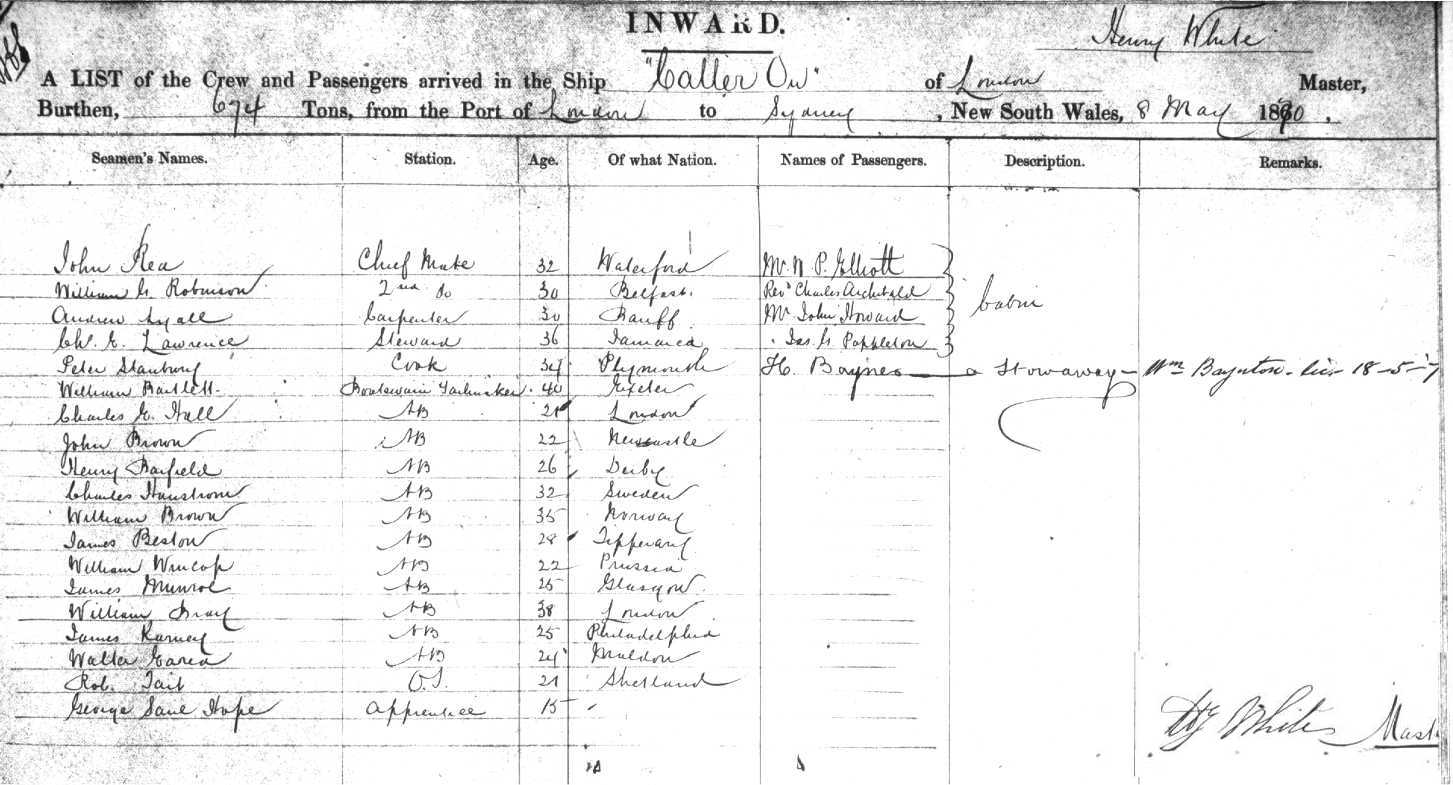 INWARD.
Henry White
A LIST of the Crew and Passengers arrived in the Ship "Caller Ou" of London Master,
Burthen, 674 Tons, from the Port of London to Sydney, New South Wales, 8 May 1870.
Seamen's Names. Station. Age. Of what Nation. Names of Passengers. Description. Remarks.
John Rea Chief Mate 32 Waterford Mr. W. P. Elliott
William G. Robinson 2nd do 30 Belfast. Revd Charles Archibald Cabin
Andrew Lyall Carpenter 30 Banff Mr John Howard
Ch. E. Lawrence Steward 36 Jamaica Jas. G. Poppleton
Peter Stanbury Cook 34 Plymouth H. Baynes a Stowaway Wm Baynton 18-5-7
William Bartlett Boatswain Sailmaker 40 Exeter
Charles G. Hall AB 21 London
John Brown AB 22 Newcastle
Henry Barfield AB 26 Derby
Charles AB 32 Sweden
William Brown AB 35 Norway
James Beston AB 28 Tipperary
William Wincop AB 22 Prussia
James Munroe AB 25 Glasgow
William Gray AB 38 London
James Karney AB 25 Philadelphia
Walter AB 24 Maldon
Rob. Tait O.S. 21 Shetland
George Hope Apprentice 15
Hy White Mast